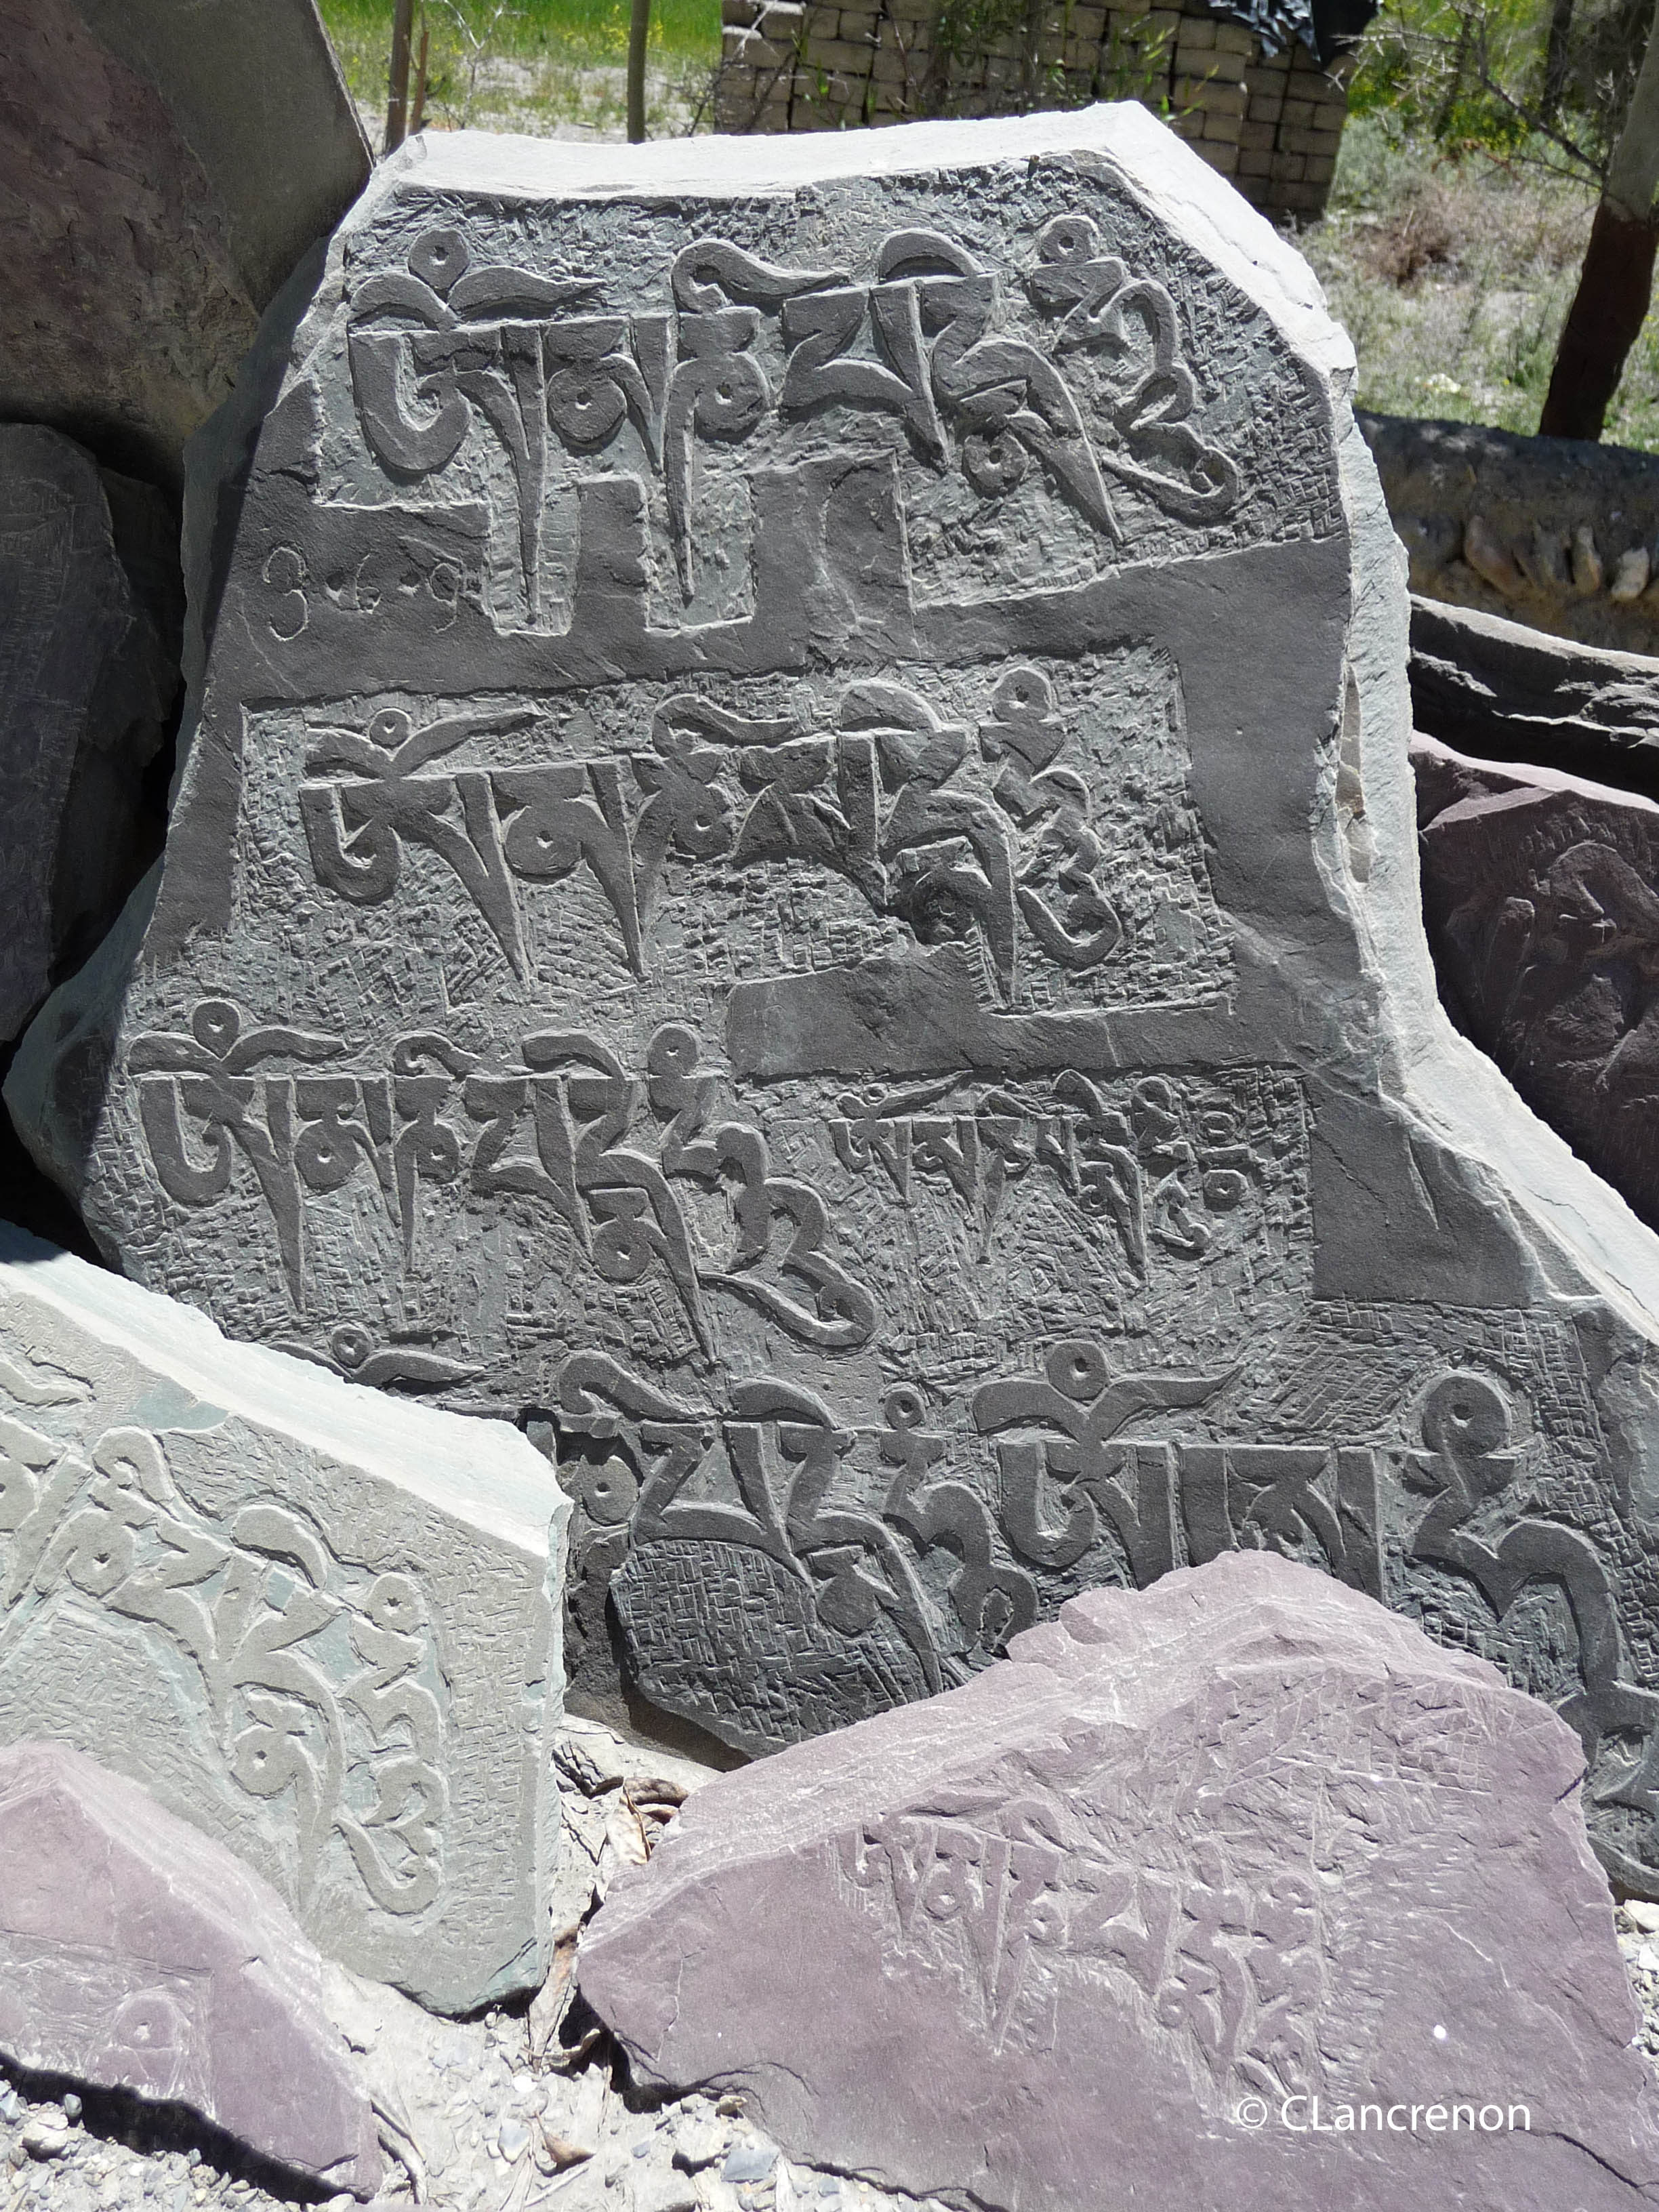 ཨོཾ་མ་ཎི་པདྨེ་ཧཱུྃ
3-6-9
ཨོཾ་མ་ཎི་པདྨེ་ཧཱུྃ
ཨོཾ་མ་ཎི་པདྨེ་ཧཱུྃ
ཨོཾ་མ་ཎི་པདྨེ་ཧཱུྃ༔
ཎི་པདྨེ་ཧཱུྃ
ཎི་པདྨེ་ཧཱུྃ
ཨོཾ་མ་ཎི་པདྨེ་ཧཱུྃ
© CLancrenon